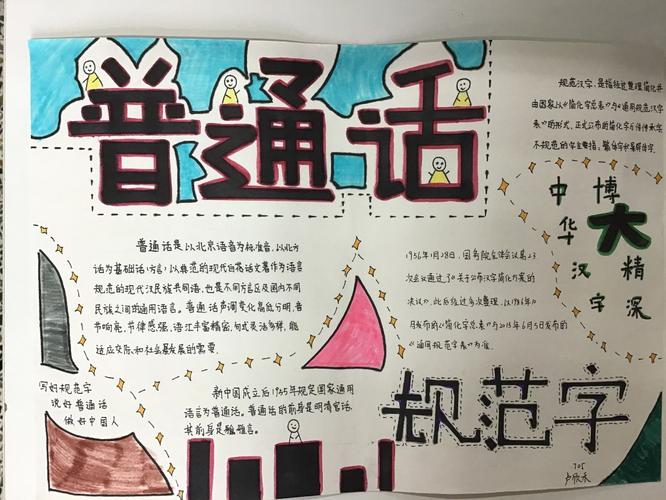 普通话
规范汉字,是指经过整理简化并
由国家以《简化字总表》与《通用规范汉字
表》的形式,正式公布的简化字与传承字
不规范的字主要指,繁体字和异体字.
中华汉字
博大精深
普通话是以北京语音为标准音,以北方
话为基础话(方言),以典范的现代白话文著作为语言
规范的现代汉民族共同语,也是不同方言及国内不同
民族之间的通用语言。普通话声调变化高低分明,音
节响亮,节律感强,语汇丰富精密,句式灵活多样,能
适应交际和社会发展的需要.
1956年1月28日,国务院全体会议第23
次会议通过了《关于公布汉字简化方案的
决议》,此后经过多次整理,以1986年10
月发布的《简化字总表》与2013年6月5日发布的
《通用规范字表》为准.
写好规范字
说好普通话
做好中国人
新中国成立后1955年规定国家通用
语言为普通话。普通话的前身是明清官话,
其前身是雅言.
规范字
705